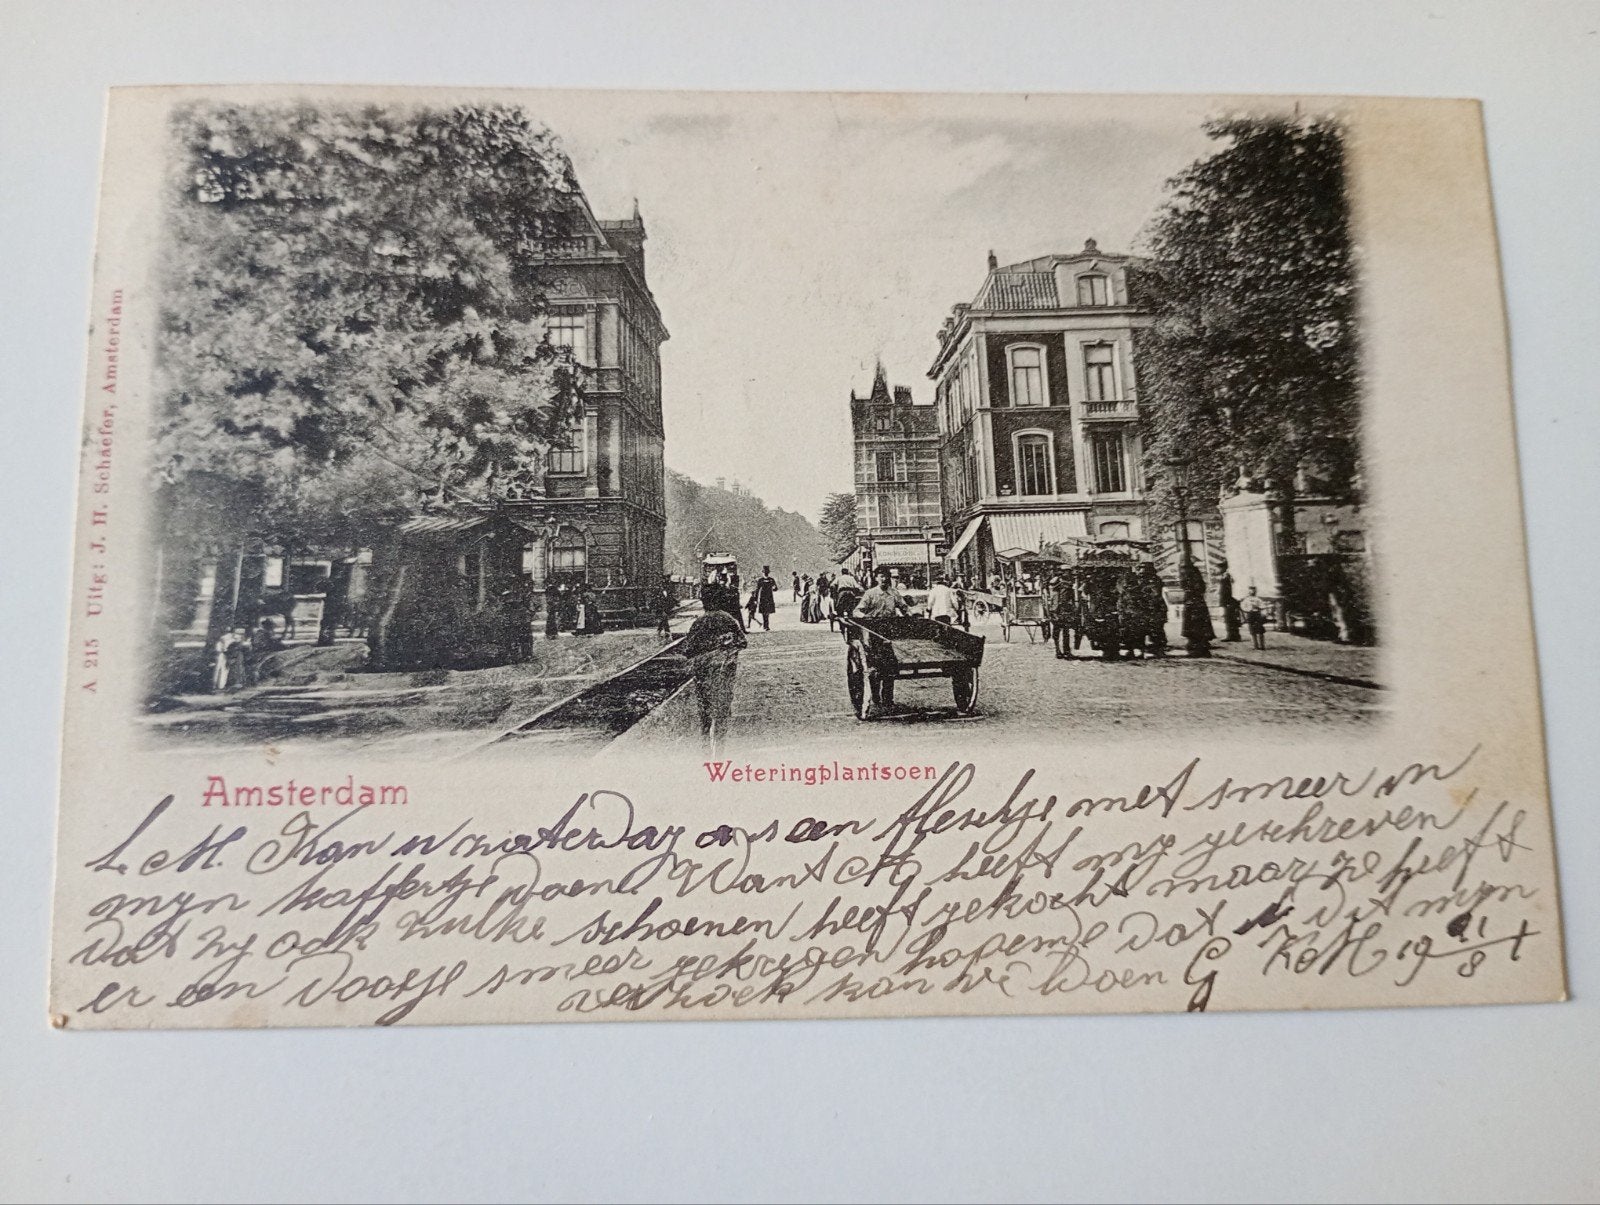 A 215 Uitg: J. H. Schaefer, Amsterdam
Amsterdam
Weteringplantsoen
L. M. Kan u zaterdag een flesetje met smeer in
mijn koffertje doen. Want M heeft mij geschreven
dat zij ook zulke schoenen heeft gekocht maar ze heeft
er een doosje smeer gekregen hopende dat u dit mijn
verzoek kan wi doen G K M 19 21/8 1